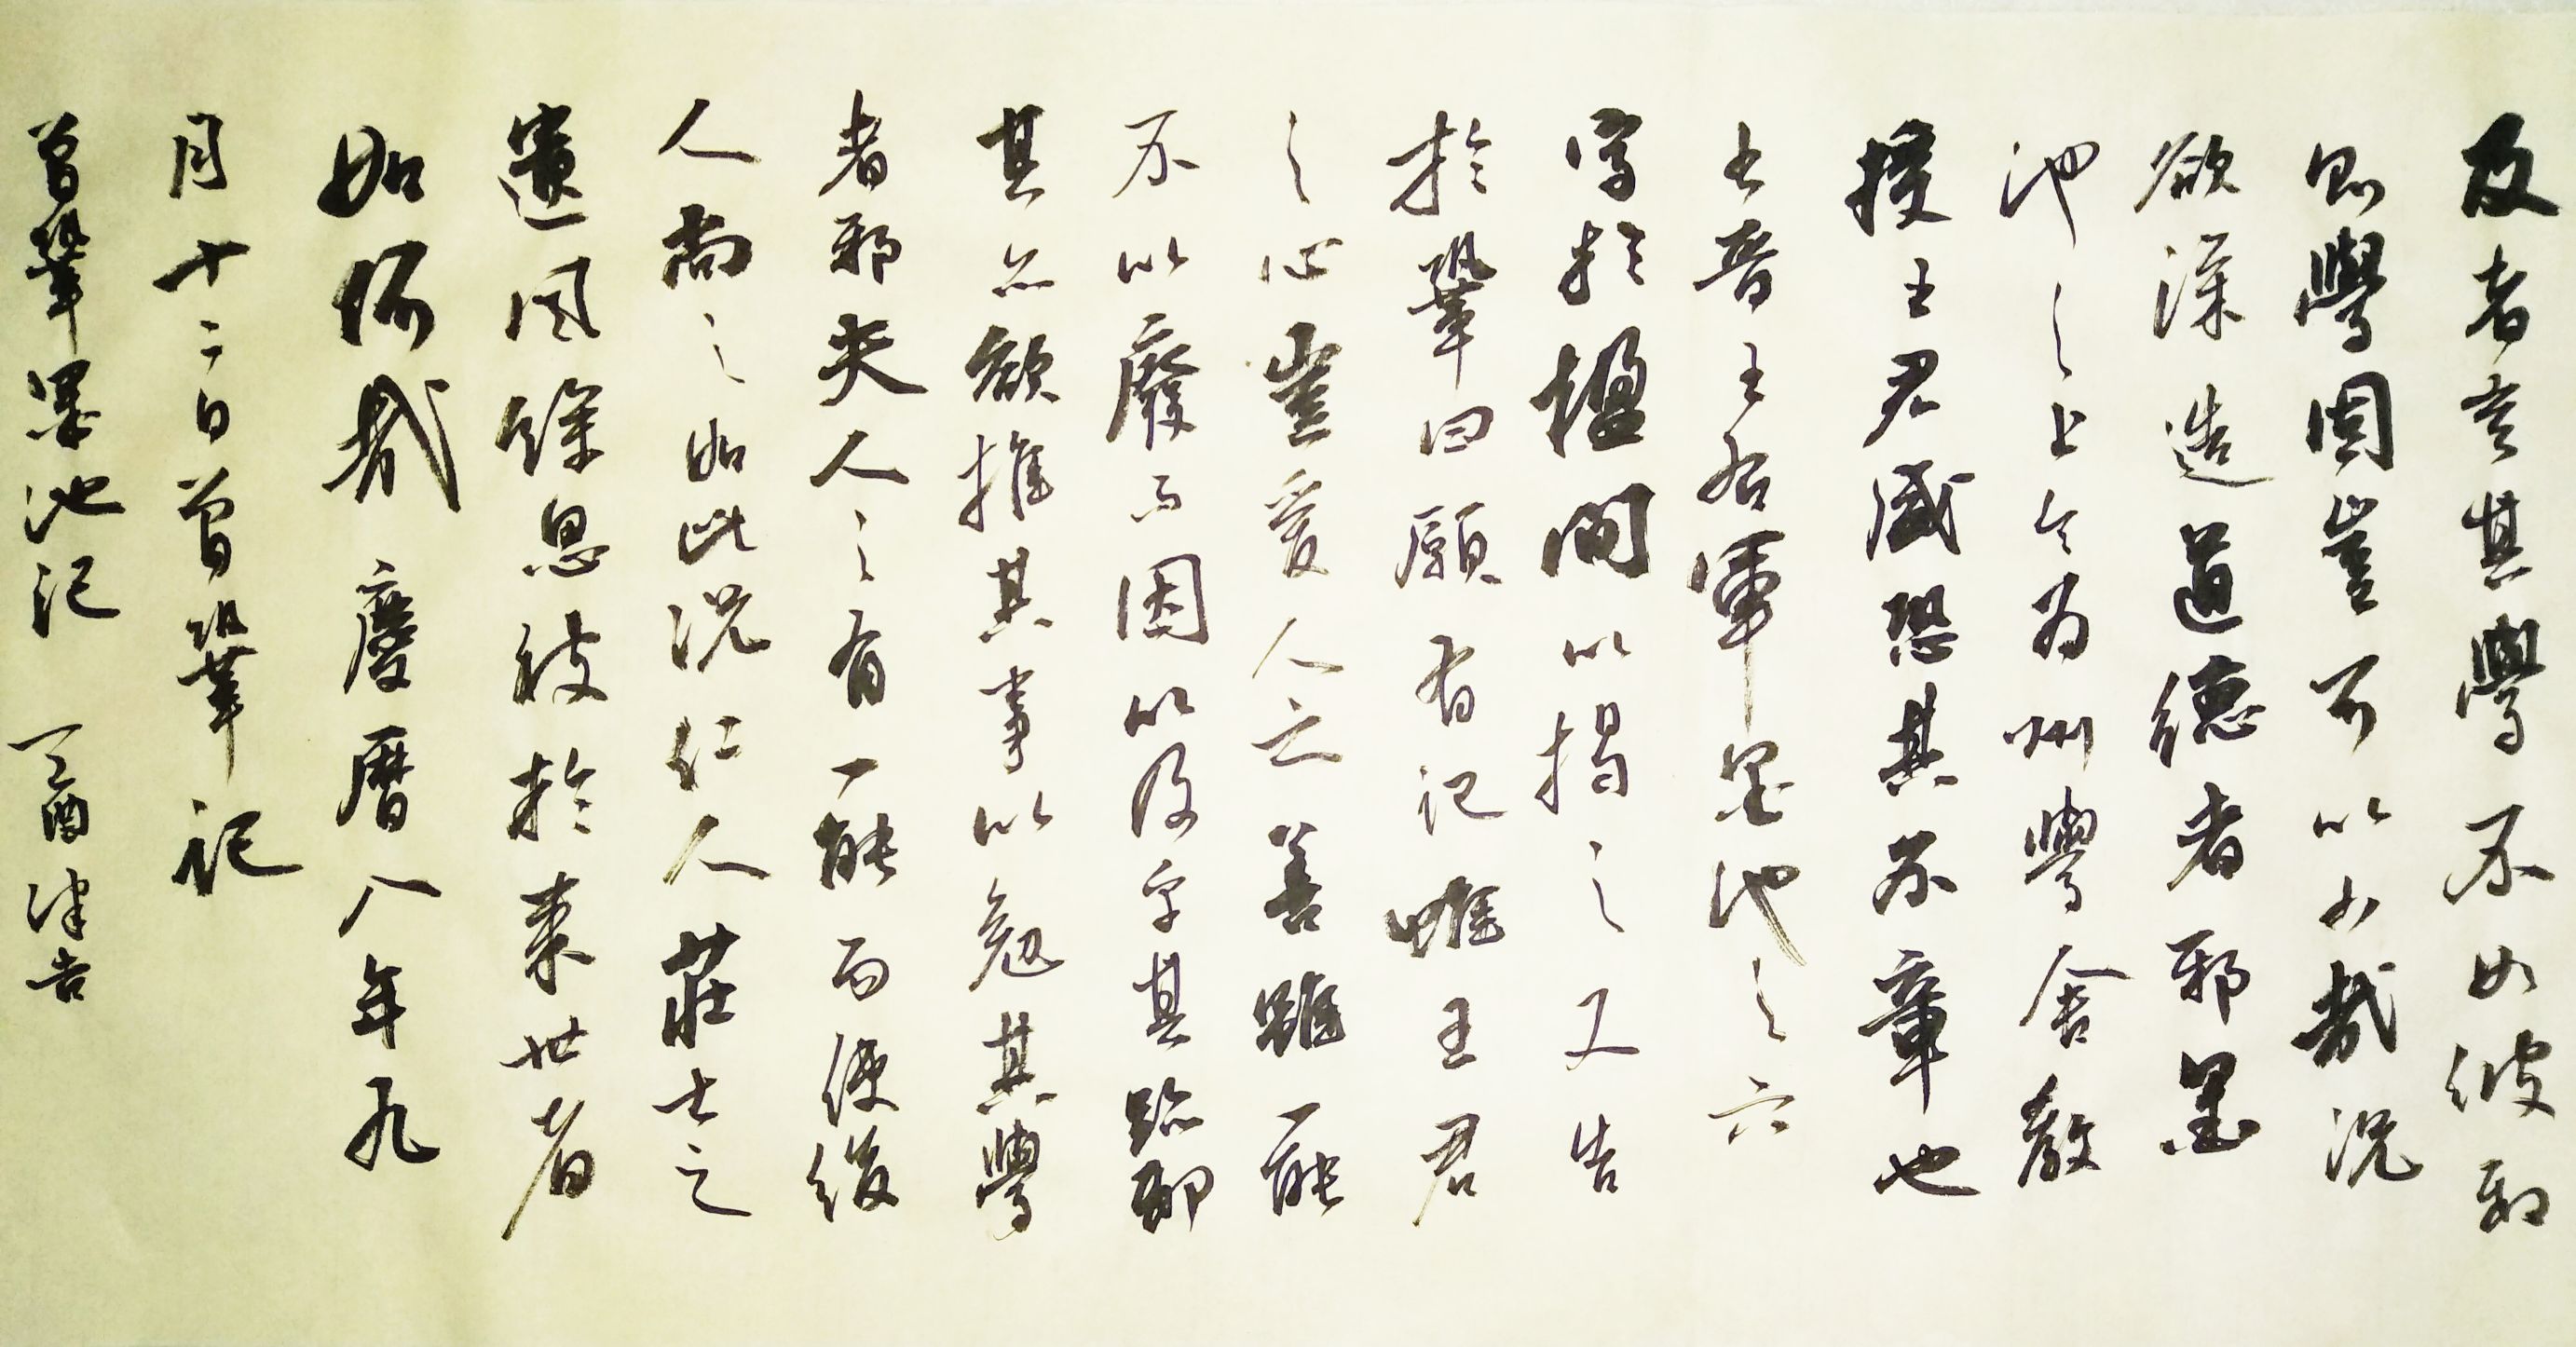 及者豈其學不如彼邪
則學固豈可以少哉況
欲深造道德者邪墨
池之上今為州學舍教
授王君盛恐其不章也
書晉王右軍墨池之六
字於楹間以揭之又告
於鞏曰願有記惟王君
之心豈愛人之善雖一能
不以廢而因以及乎其跡邪
其亦欲推其事以勉其學
者邪夫人之有一能而使後
人尚之如此況仁人莊士之
遺風餘思被於來世者
如何哉 慶曆八年九
月十二日曾鞏記
曾鞏墨池記 丁酉